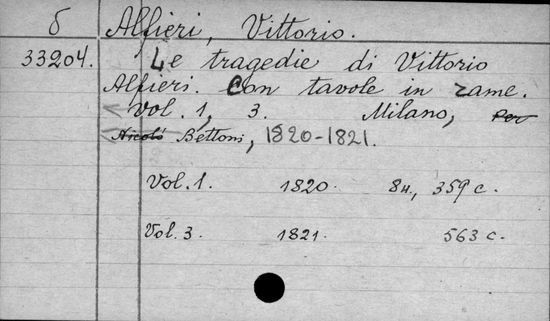 б Alfieri, Vittorio.
33204. Le tragedie di Vittorio
Alfieri. Con tavole in rame.
Vol. 1, 3. Milano, Per
Nicolò Bettoni, 1820-1821.
Vol. 1. 1820. 8н., 359 с.
Vol. 3. 1821. 563 с.